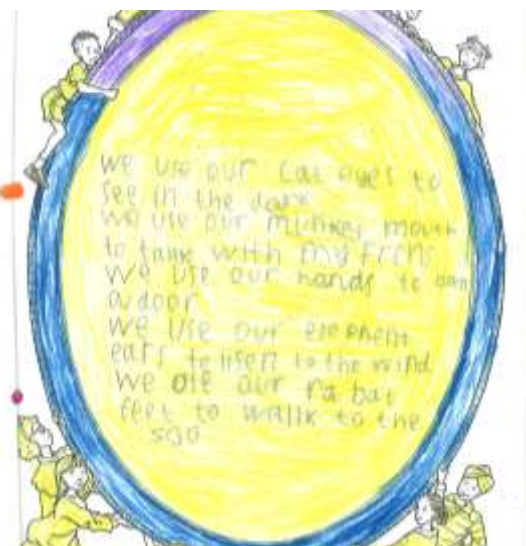 we use our cat eyes to
see in the dark
we use our munkey mouth
to tank with my frens
we use our hands to opn
a door
we use our elephent
ears to lisen to the wind
we ote our ra bat
feet to wallk to the
soo